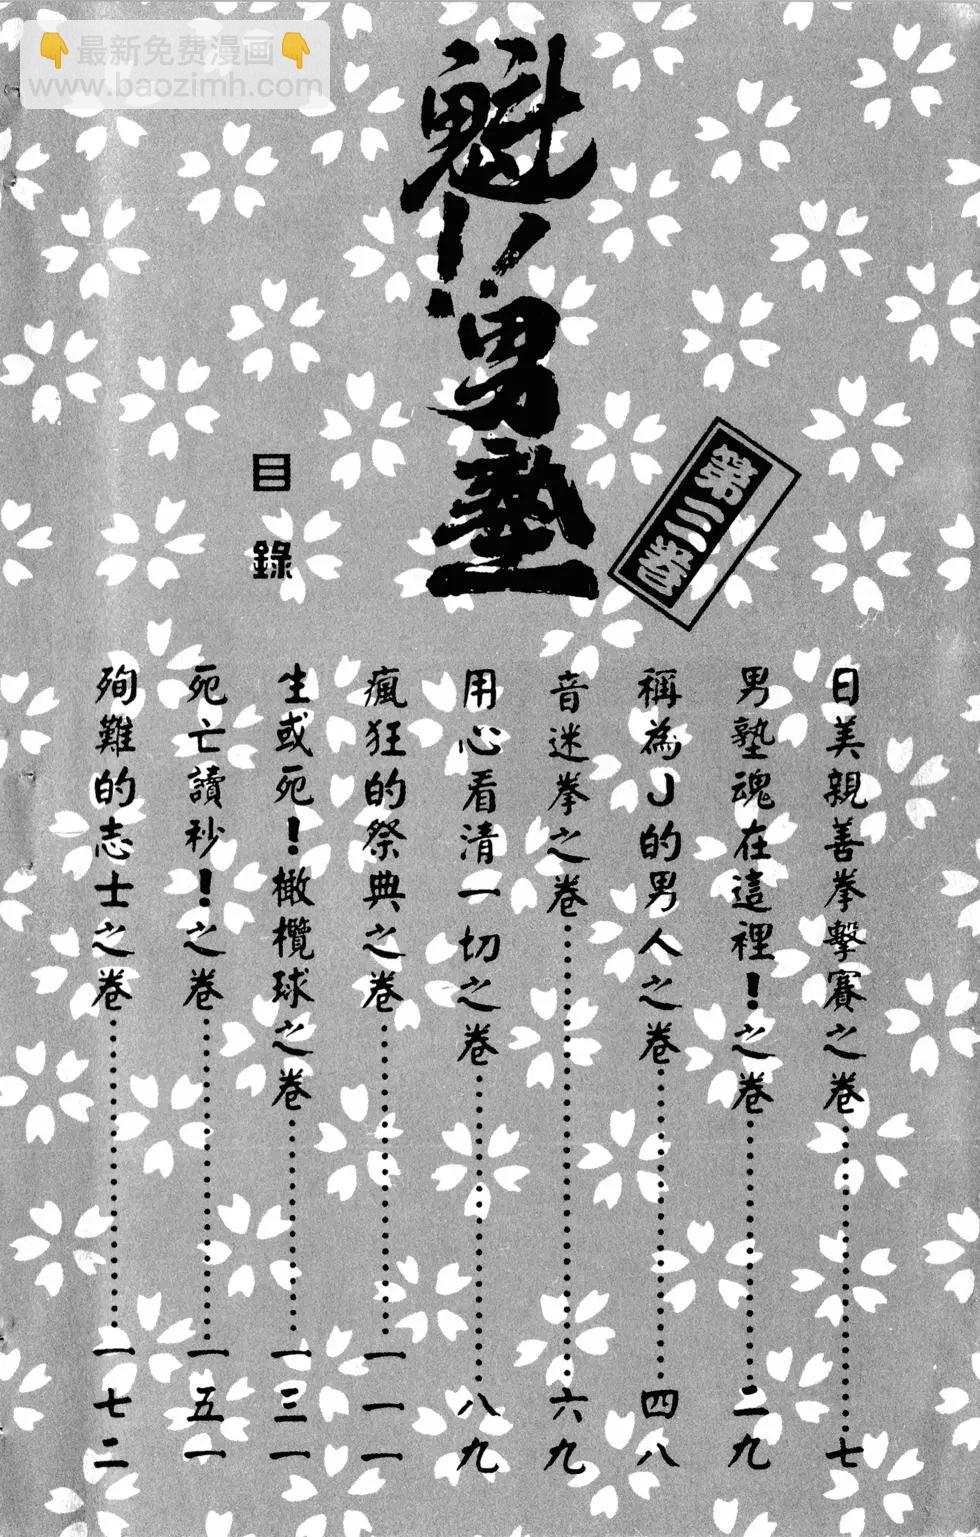 👇最新免费漫画👇
www.baozimh.com
魁!!男塾
第三卷
目錄
日美親善拳擊賽之卷……七
男塾魂在這裡!之卷……二九
稱為J的男人之卷……四八
音迷拳之卷……六九
用心看清一切之卷……八九
瘋狂的祭典之卷……一一一
生或死!橄欖球之卷……一三一
死亡讀秒!之卷……一五一
殉難的志士之卷……一七二